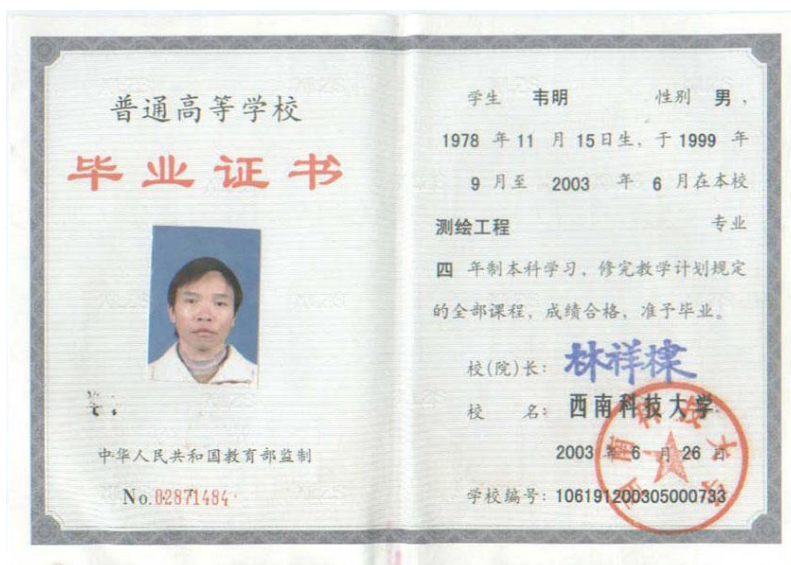 普通高等学校
毕业证书
中华人民共和国教育部监制
No.02871484
学生 韦明 性别 男，
1978 年 11 月 15 日生，于 1999 年
9 月至 2003 年 6 月在本校
测绘工程 专业
四 年制本科学习，修完教学计划规定
的全部课程，成绩合格，准予毕业。
校(院)长：林祥棣
校 名：西南科技大学
2003 年 6 月 26 日
学校编号：106191200305000733
西南科技大学